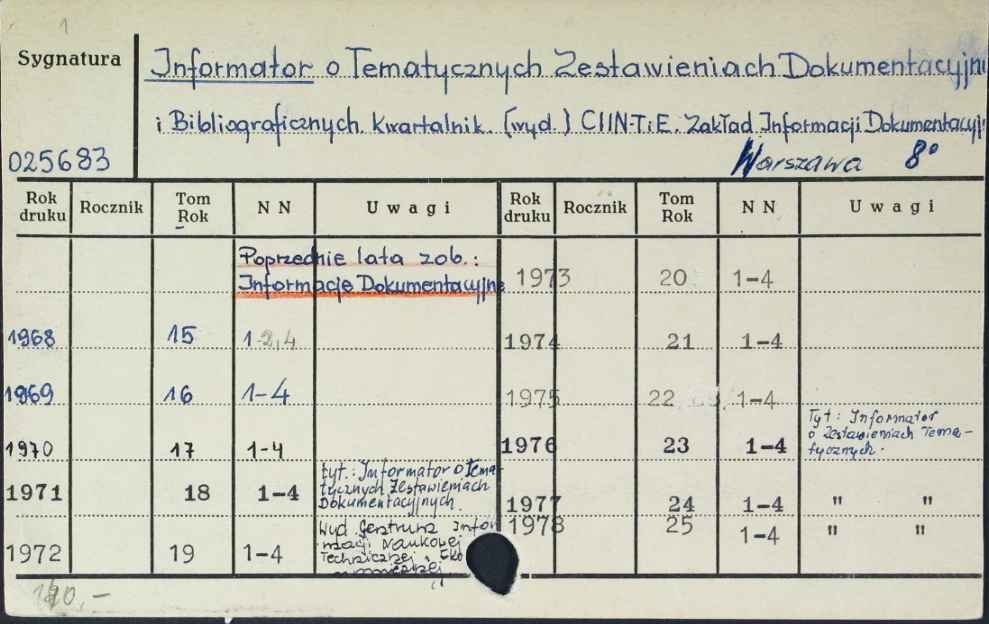 1
Sygnatura
Informator o Tematycznych Zestawieniach Dokumentacyjny
i Bibliograficznych. Kwartalnik. (wyd.) CIINTiE. Zakład Informacji Dokumentacyj
025683 Warszawa 8°
Rok druku Rocznik Tom Rok NN Uwagi Rok druku Rocznik Tom Rok NN Uwagi
Poprzednie lata zob.:
Informacje Dokumentacyjne
1973 20 1-4
1968 15 1-2,4
1974 21 1-4
1969 16 1-4
1975 22 1-4
1970 17 1-4
1976 23 1-4 Tyt: Informator
o Zestawieniach Tema-
tycznych.
1971 18 1-4 tyt.: Informator o Tema-
tycznych Zestawieniach
Dokumentacyjnych.
1977 24 1-4 " "
1972 19 1-4 Wyd. Centrum Infor
macji Naukowej
Technicznej, Eko
nomicznej
1978 25 1-4 " "